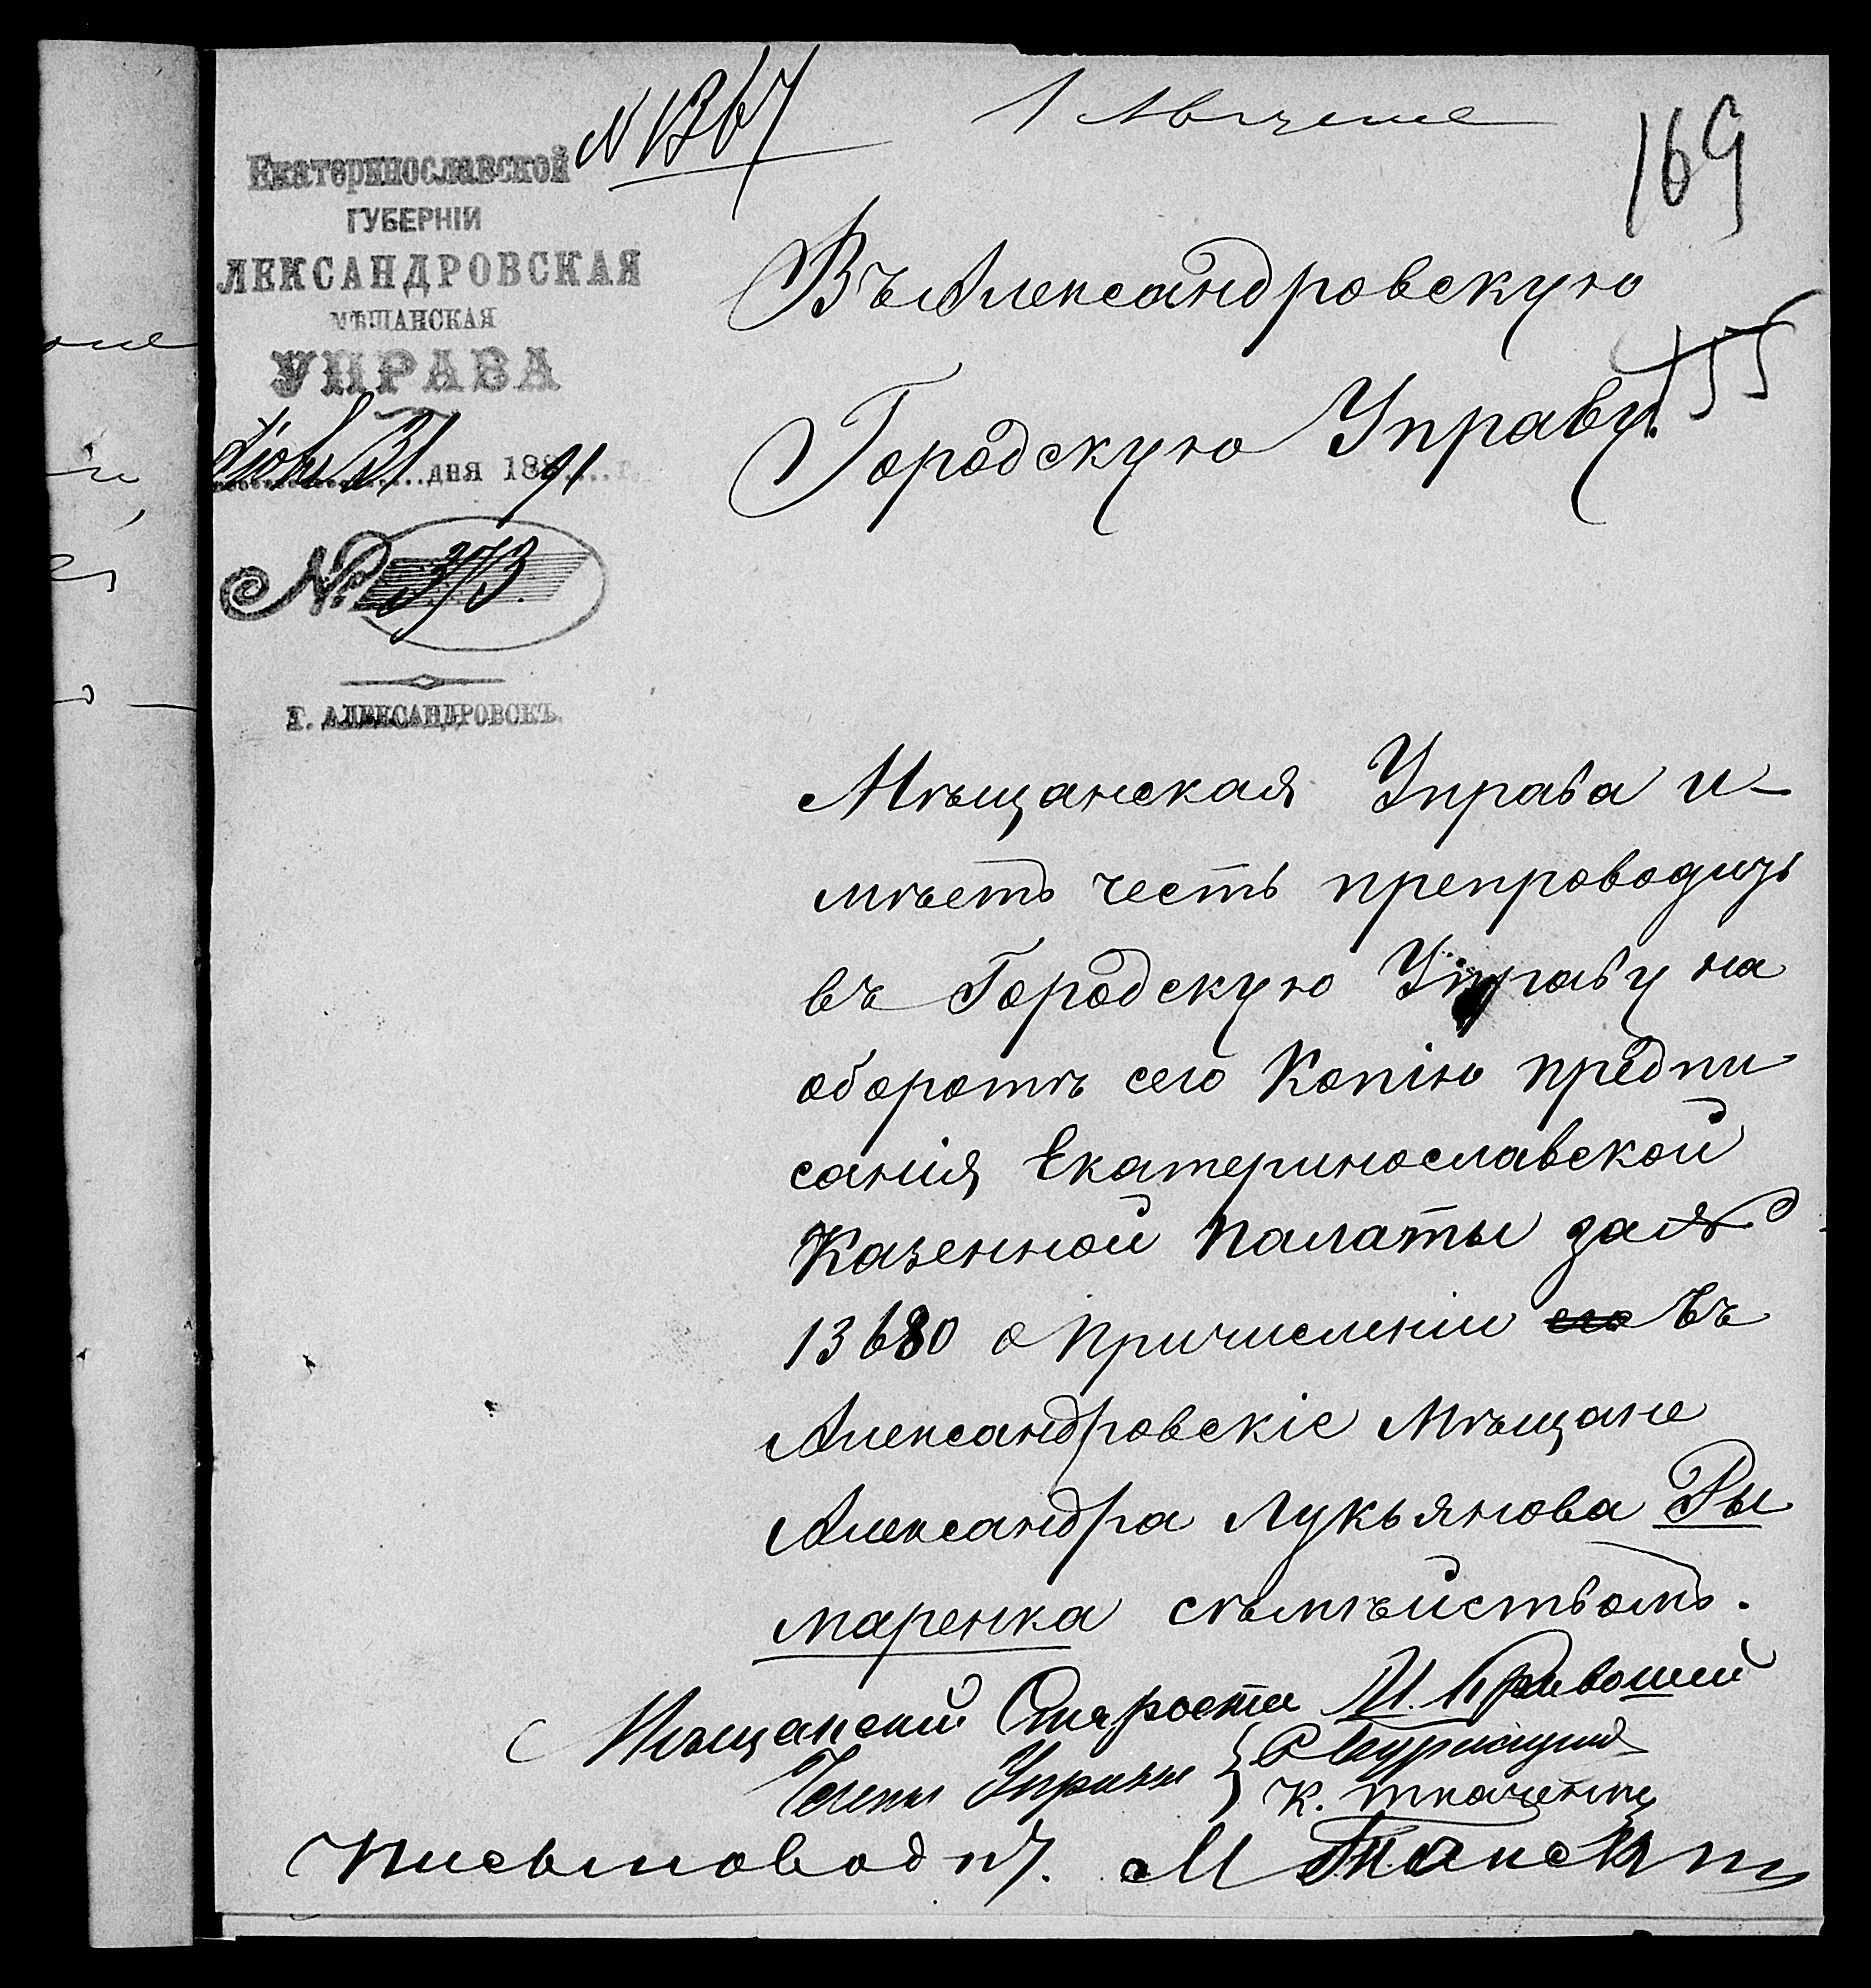 N 1367
1 Августа
169
Екатеринославской
ГУБЕРНІИ
ЛЕКСАНДРОВСКАЯ
МѢЩАНСКАЯ
УПРАВА
Іюля 31 дня 1891 г.
№ 373.
Г. АЛЕКСАНДРОВСКЪ.
Въ Александровскую
155
Городскую Управу.
Мѣщанская Управа и-
мѣетъ честь препроводить
въ Городскую Управу на
оборотѣ сего Копію предпи
санія Екатеринославской
Казенной Палаты за №
13680 о причисленіи его въ
Александровскіе Мѣщане
Александра Лукьянова Ры
маренка съ семѣйствомъ.
Мѣщанскій Староста И. Кривошей
Члены Управы
К. Ткаченко
Письмовод